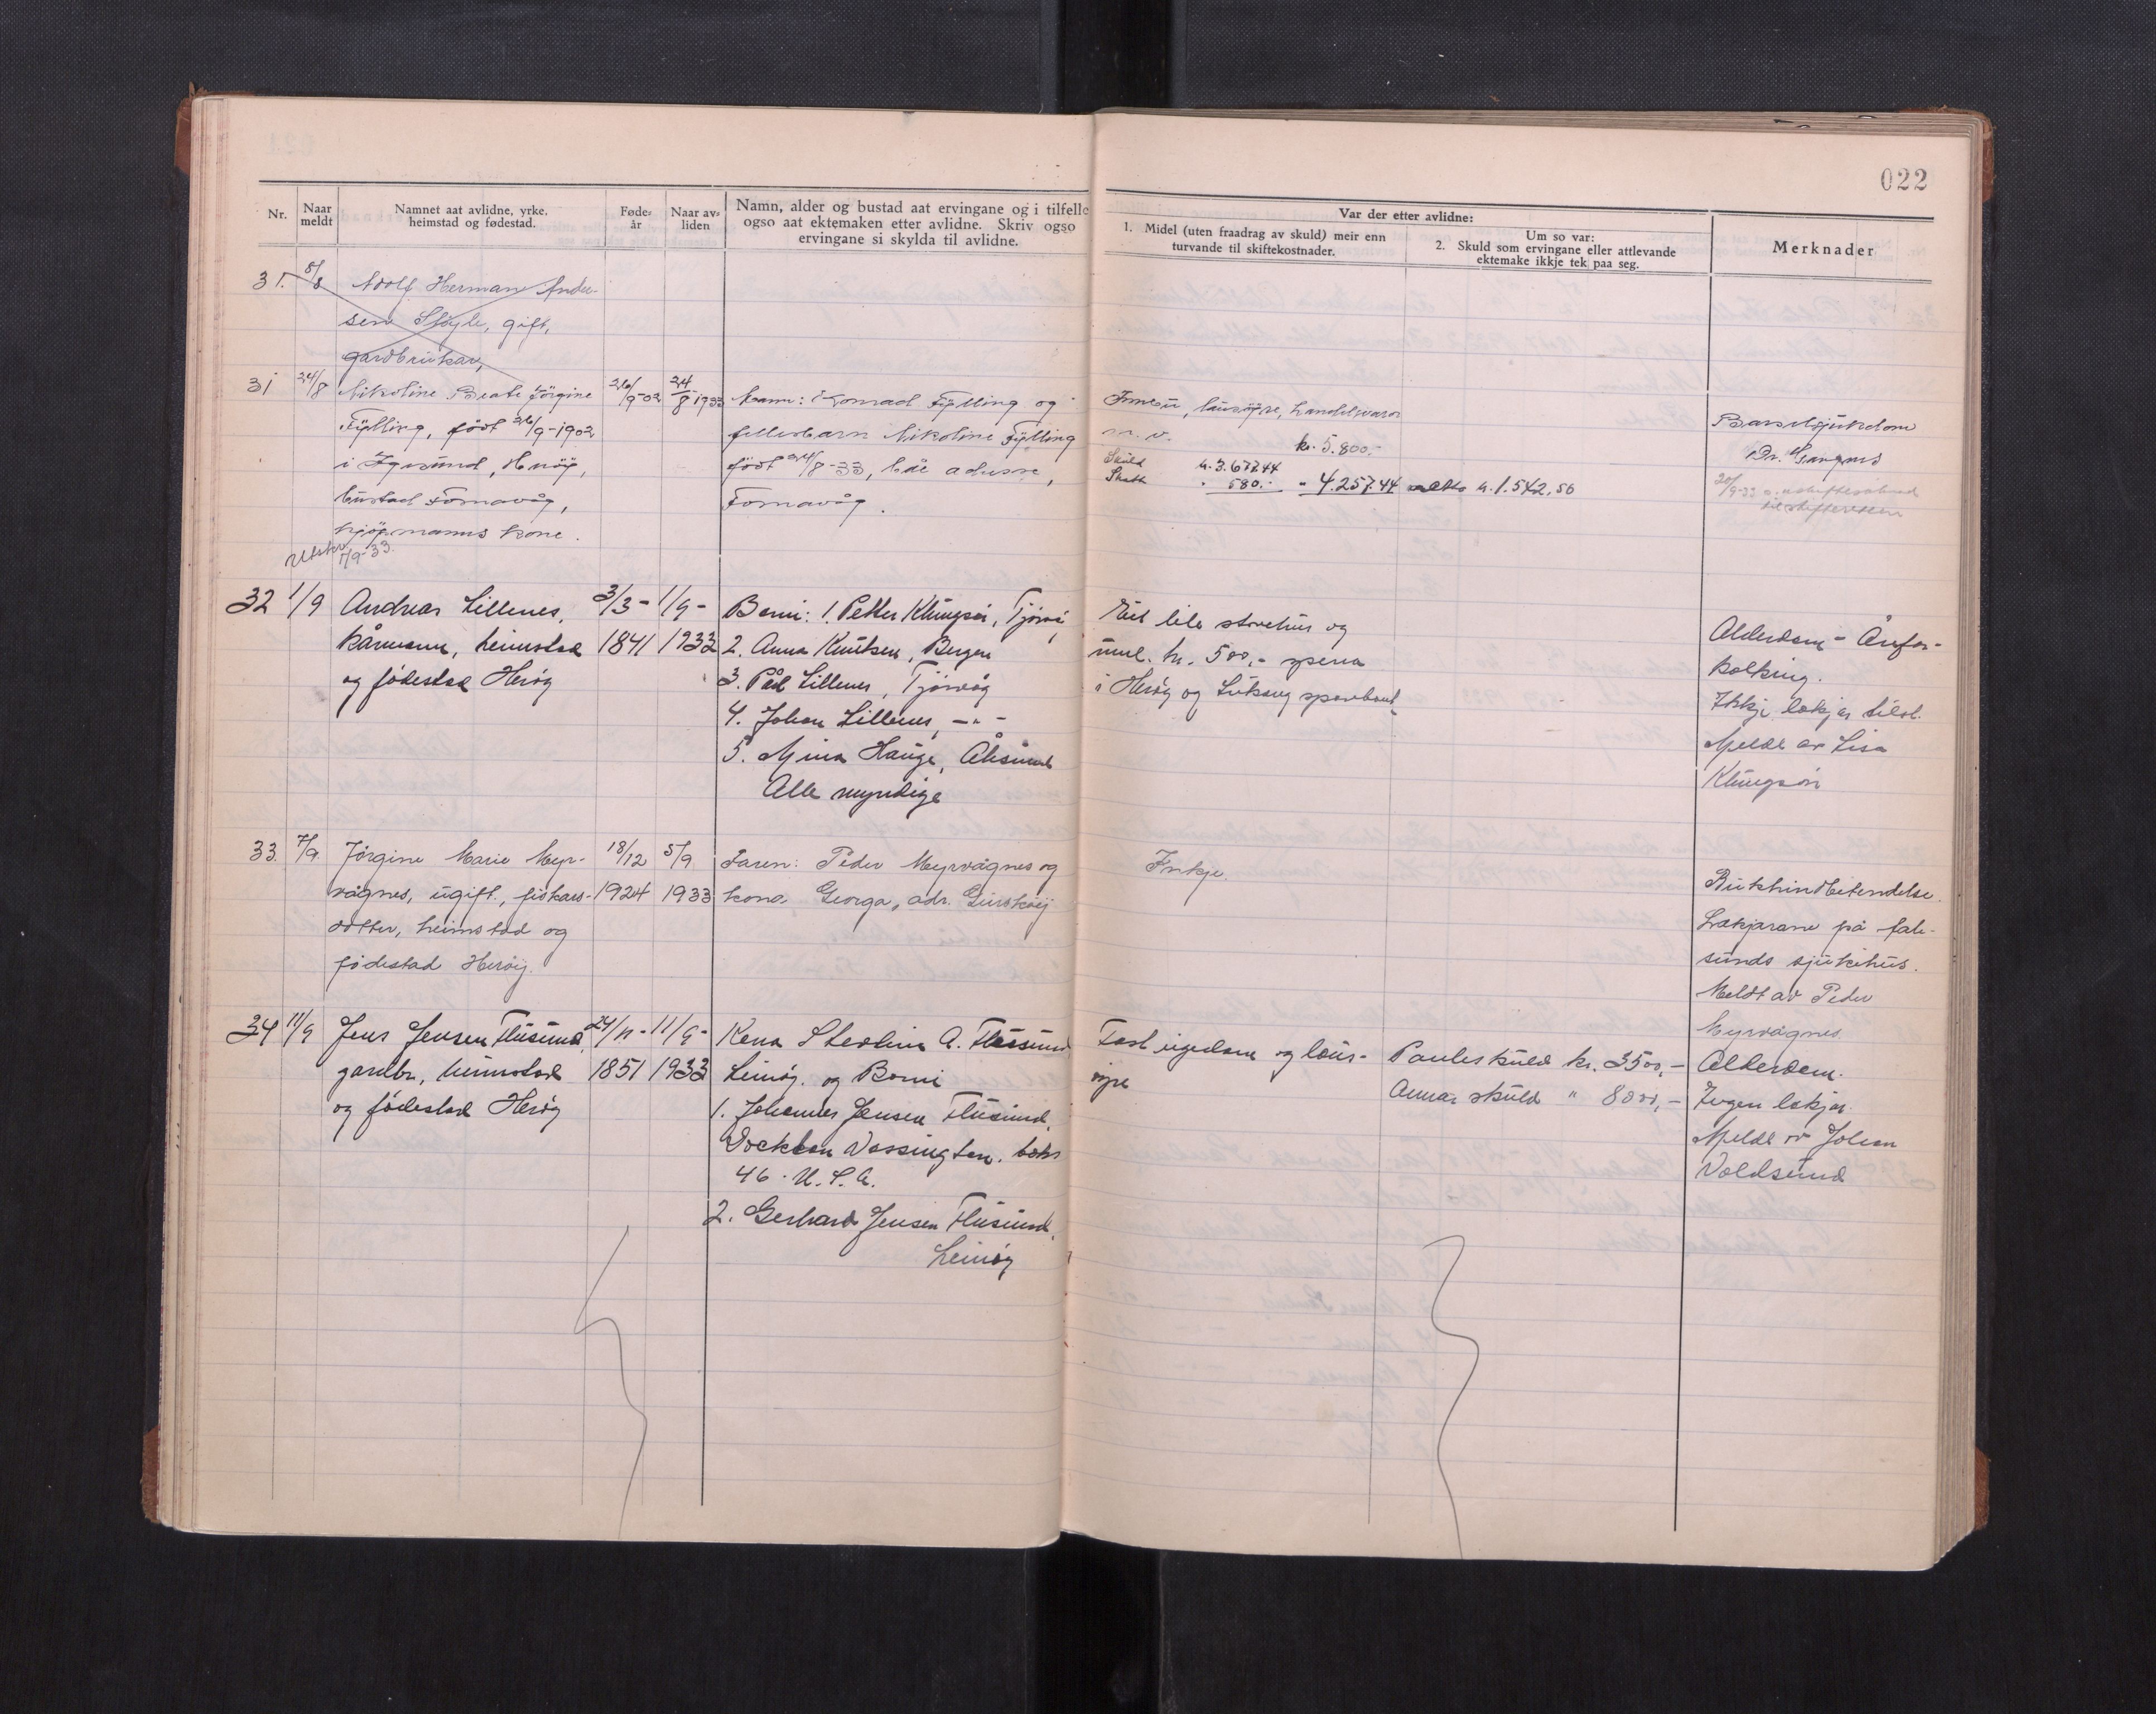 022
Nr.
Naar meldt
Namnet aat avlidne, yrke, heimstad og fødestad.
Føde-år
Naar av-liden
Namn, alder og bustad aat ervingane og i tilfelle
ogso aat ektemaken etter avlidne. Skriv ogso
ervingane si skylda til avlidne.
Var der etter avlidne:
1. Midel (uten fraadrag av skuld) meir enn
turvande til skiftekostnader.
Um so var:
2. Skuld som ervingane eller attlevande
ektemake ikkje tek paa seg.
Merknader
31. 8/8 Adolf Herman Ander-
sen Støyle, gift,
gardbrukar,
31 24/8 Nikoline Beate Jörgine
Fylling, född 26/9-1902
i Herøy,
bustad Fosnavåg,
kjøpmanns kone.
17/9-33.
26/9-02
24/8-1933
Mann: Konrad Fylling og
fellesbarn Nikoline Fylling
född 24/8-33, både adresse,
Fosnavåg.
lausøyre, handelsvaror
m. v. kr. 5.800.-
Skuld kr. 3.677.44
Skatt " 580.- " 4.257.44 netto kr. 1.542.56
Barselsjukdom
Dr.
20/9-33
32 1/9 Andreas Lillenes,
kårmann, heimstad
og fødestad Herøy
3/3-
1841
1/9-
1933
Born: 1. Petter Klungsør, Tjørvåg
2. Anna Knutsen, Bergen
3. Pål Lillenes, Tjørvåg
4. Johan Lillenes, -"-
5. Mina Hauge, Ålesund
Alle myndige
Eit lite stovehus og
innl. kr. 500,-
i Herøy og Leikong sparebank
Alderdom - Åreför-
kalking.
Ikkje lækjar tilst.
Meldt av Lisa
Klungsør
33. 7/9 Jörgine Marie Myr-
vågnes, ugift, fiskars-
dotter, heimstad og
födestad Heröy.
18/12
1924
5/9
1933
Faren: Peder Myrvågnes og
kona Georga, adr. Gurskøy
Inkje.
Bukhinnebetendelse.
Lækjarane på Åle-
sunds sjukehus.
Meldt av Peder
Myrvågnes.
34 11/9 Jens Jensen Flusund,
gardbr, heimstad
og fødestad Herøy
24/11-
1851
11/9-
1933
Kona A. Flusund
Leinøy. og Born:
1. Johannes Jensen Flusund,
Stockton Wassington. boks
46. U. S. A.
2. Gerhard Jensen Flusund,
Leinøy
Fast eigedom og laus-
øyre
Panteskuld kr. 3500,-
Annar skuld " 8000,-
Alderdom.
Ingen lækjar.
Meldt av Johan
Voldsund